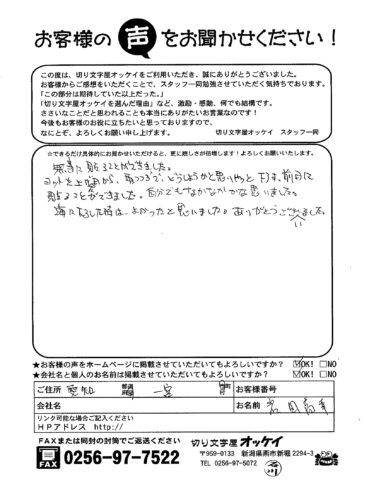 お客様の声をお聞かせください！
この度は、切り文字屋オッケイをご利用いただき、誠にありがとうございました。
お客様からご感想をいただくことで、スタッフ一同勉強させていただく気持ちであります。
「この部分は期待していた以上だった。」
「切り文字屋オッケイを選んだ理由」など、激励・感動、何でも結構です。
ささいなことだと思われることも本当にありがたいお言葉なのです！
今後もお客様のお役に立ちたいと思っておりますので、
なにとぞ、よろしくお願い申し上げます。　切り文字屋オッケイ　スタッフ一同
☆できるだけ具体的にお聞かせいただけると、更に嬉しさが倍増します！よろしくお願いいたします。
無事に貼ることができました。
ヨットを上架から、
貼ることができました。自分でもなかなかかな思いました。
海に下ろした時は、よかったと思いました。ありがとうございました。
★お客様の声をホームページに掲載させていただいてもよろしいですか？ ☑OK! □NO
★会社名と個人のお名前は掲載させていただいてもよろしいですか？ ☑OK! □NO
ご住所 愛知 都道府県 一宮 市 お客様番号
会社名 お名前 岩田
リンク可能な場合ご記入ください
ＨＰアドレス http://
FAXまたは同封の封筒でご返送ください
FAX 0256-97-7522
切り文字屋オッケイ
〒959-0133 新潟県燕市新堀 2294-3
TEL 0256-97-5072